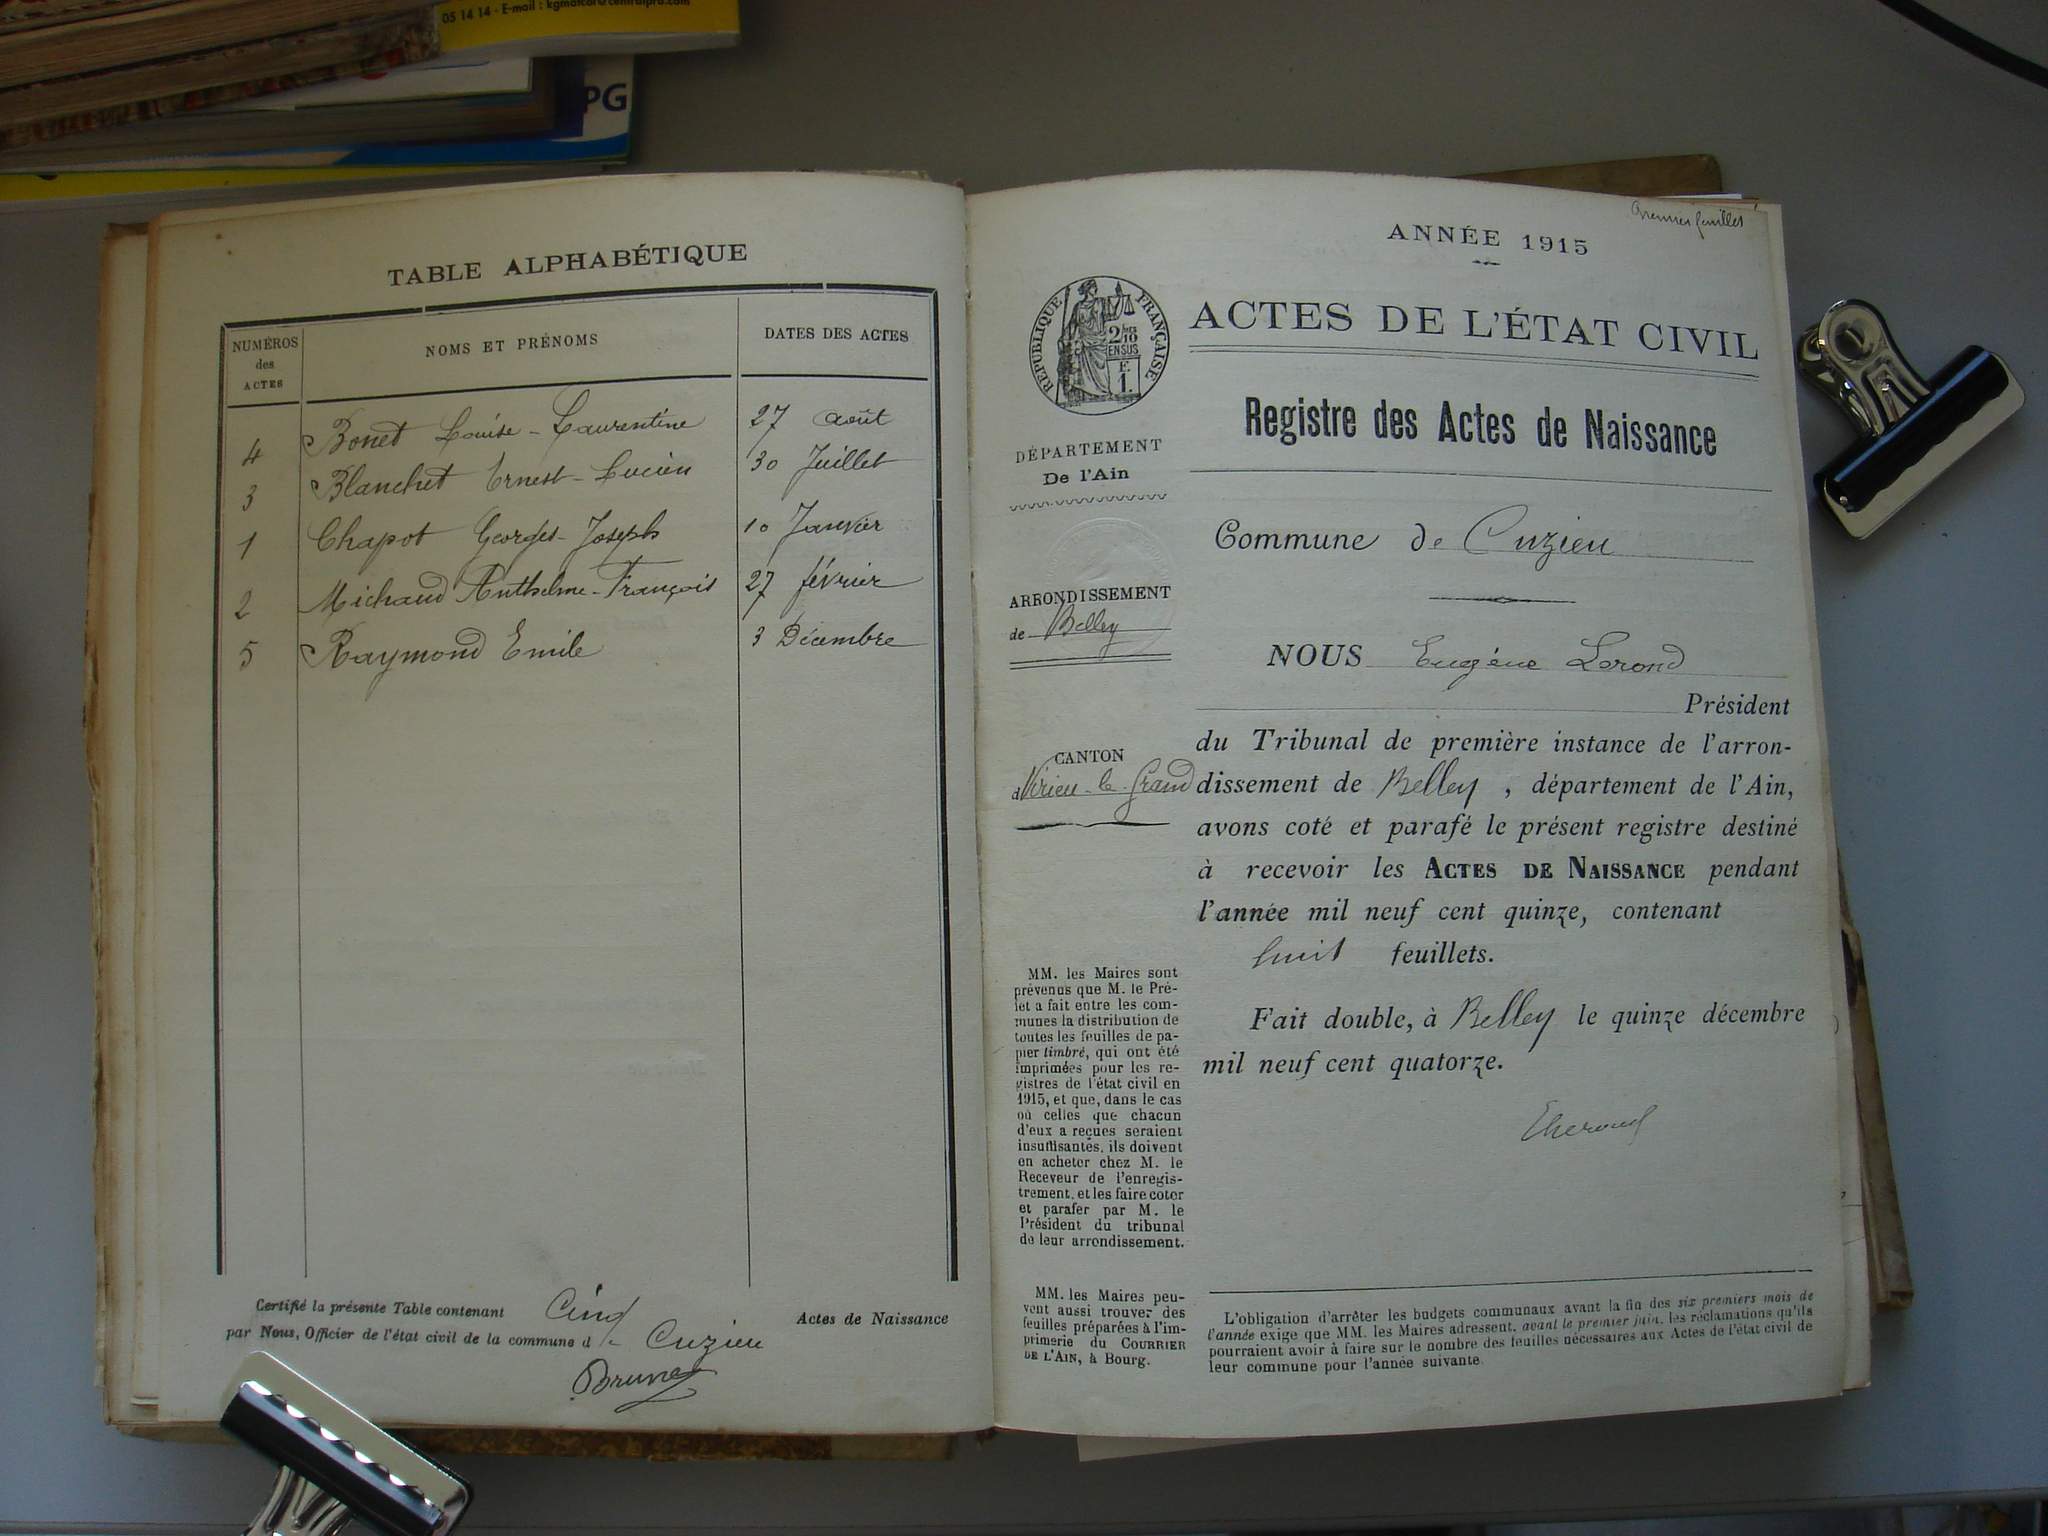 05 14 14 - E-mail : kgmatcol@centralpro.com
PG
TABLE ALPHABÉTIQUE
NUMÉROS des ACTES
NOMS ET PRÉNOMS
DATES DES ACTES
4 Bonet Louise-Laurentine 27 août
3 Blanchet Ernest-Lucien 30 Juillet
1 Chapot Georges-Joseph 10 Janvier
2 Michaud Anthelme-François 27 février
5 Raymond Emile 3 Décembre
Certifié la présente Table contenant Cinq Actes de Naissance
par Nous, Officier de l'état civil de la commune de Cuzieu
Brunet
Premier feuillet
ANNÉE 1915
RÉPUBLIQUE FRANÇAISE
2/10
EN SUS
F.
1.
ACTES DE L'ÉTAT CIVIL
Registre des Actes de Naissance
DÉPARTEMENT
De l'Ain
Commune de Cuzieu
ARRONDISSEMENT
de Belley
NOUS Eugène
Président
CANTON
d Virieu-le-Grand
du Tribunal de première instance de l'arron-
dissement de Belley, département de l'Ain,
avons coté et parafé le présent registre destiné
à recevoir les ACTES DE NAISSANCE pendant
l'année mil neuf cent quinze, contenant
huit feuillets.
Fait double, à Belley le quinze décembre
mil neuf cent quatorze.
MM. les Maires sont
prévenus que M. le Pré-
fet a fait entre les com-
munes la distribution de
toutes les feuilles de pa-
pier timbré, qui ont été
imprimées pour les re-
gistres de l'état civil en
1915, et que, dans le cas
où celles que chacun
d'eux a reçues seraient
insuffisantes, ils doivent
en acheter chez M. le
Receveur de l'enregis-
trement, et les faire coter
et parafer par M. le
Président du tribunal
de leur arrondissement.
MM. les Maires peu-
vent aussi trouver des
feuilles préparées à l'im-
primerie du COURRIER
DE L'AIN, à Bourg.
L'obligation d'arrêter les budgets communaux avant la fin des six premiers mois de
l'année exige que MM. les Maires adressent, avant le premier juin, les réclamations qu'ils
pourraient avoir à faire sur le nombre des feuilles nécessaires aux Actes de l'état civil de
leur commune pour l'année suivante.